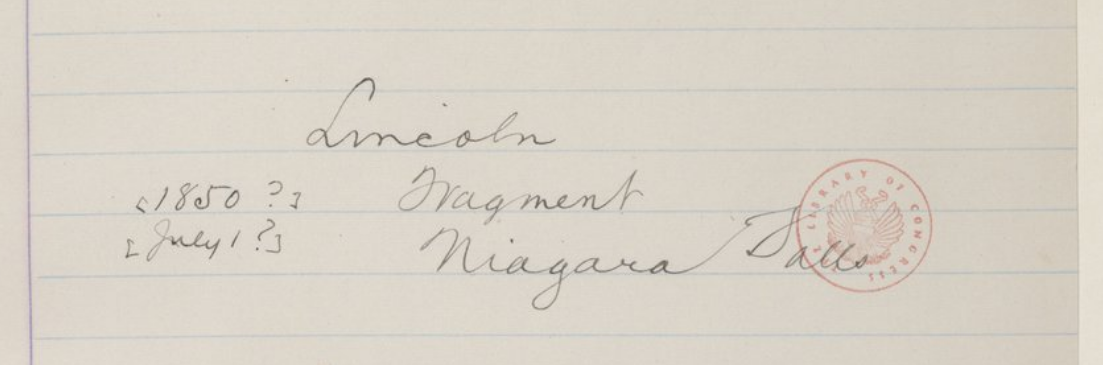 Lincoln
[1850 ?] Fragment
[July 1 ?] Niagara Falls
THE LIBRARY OF CONGRESS